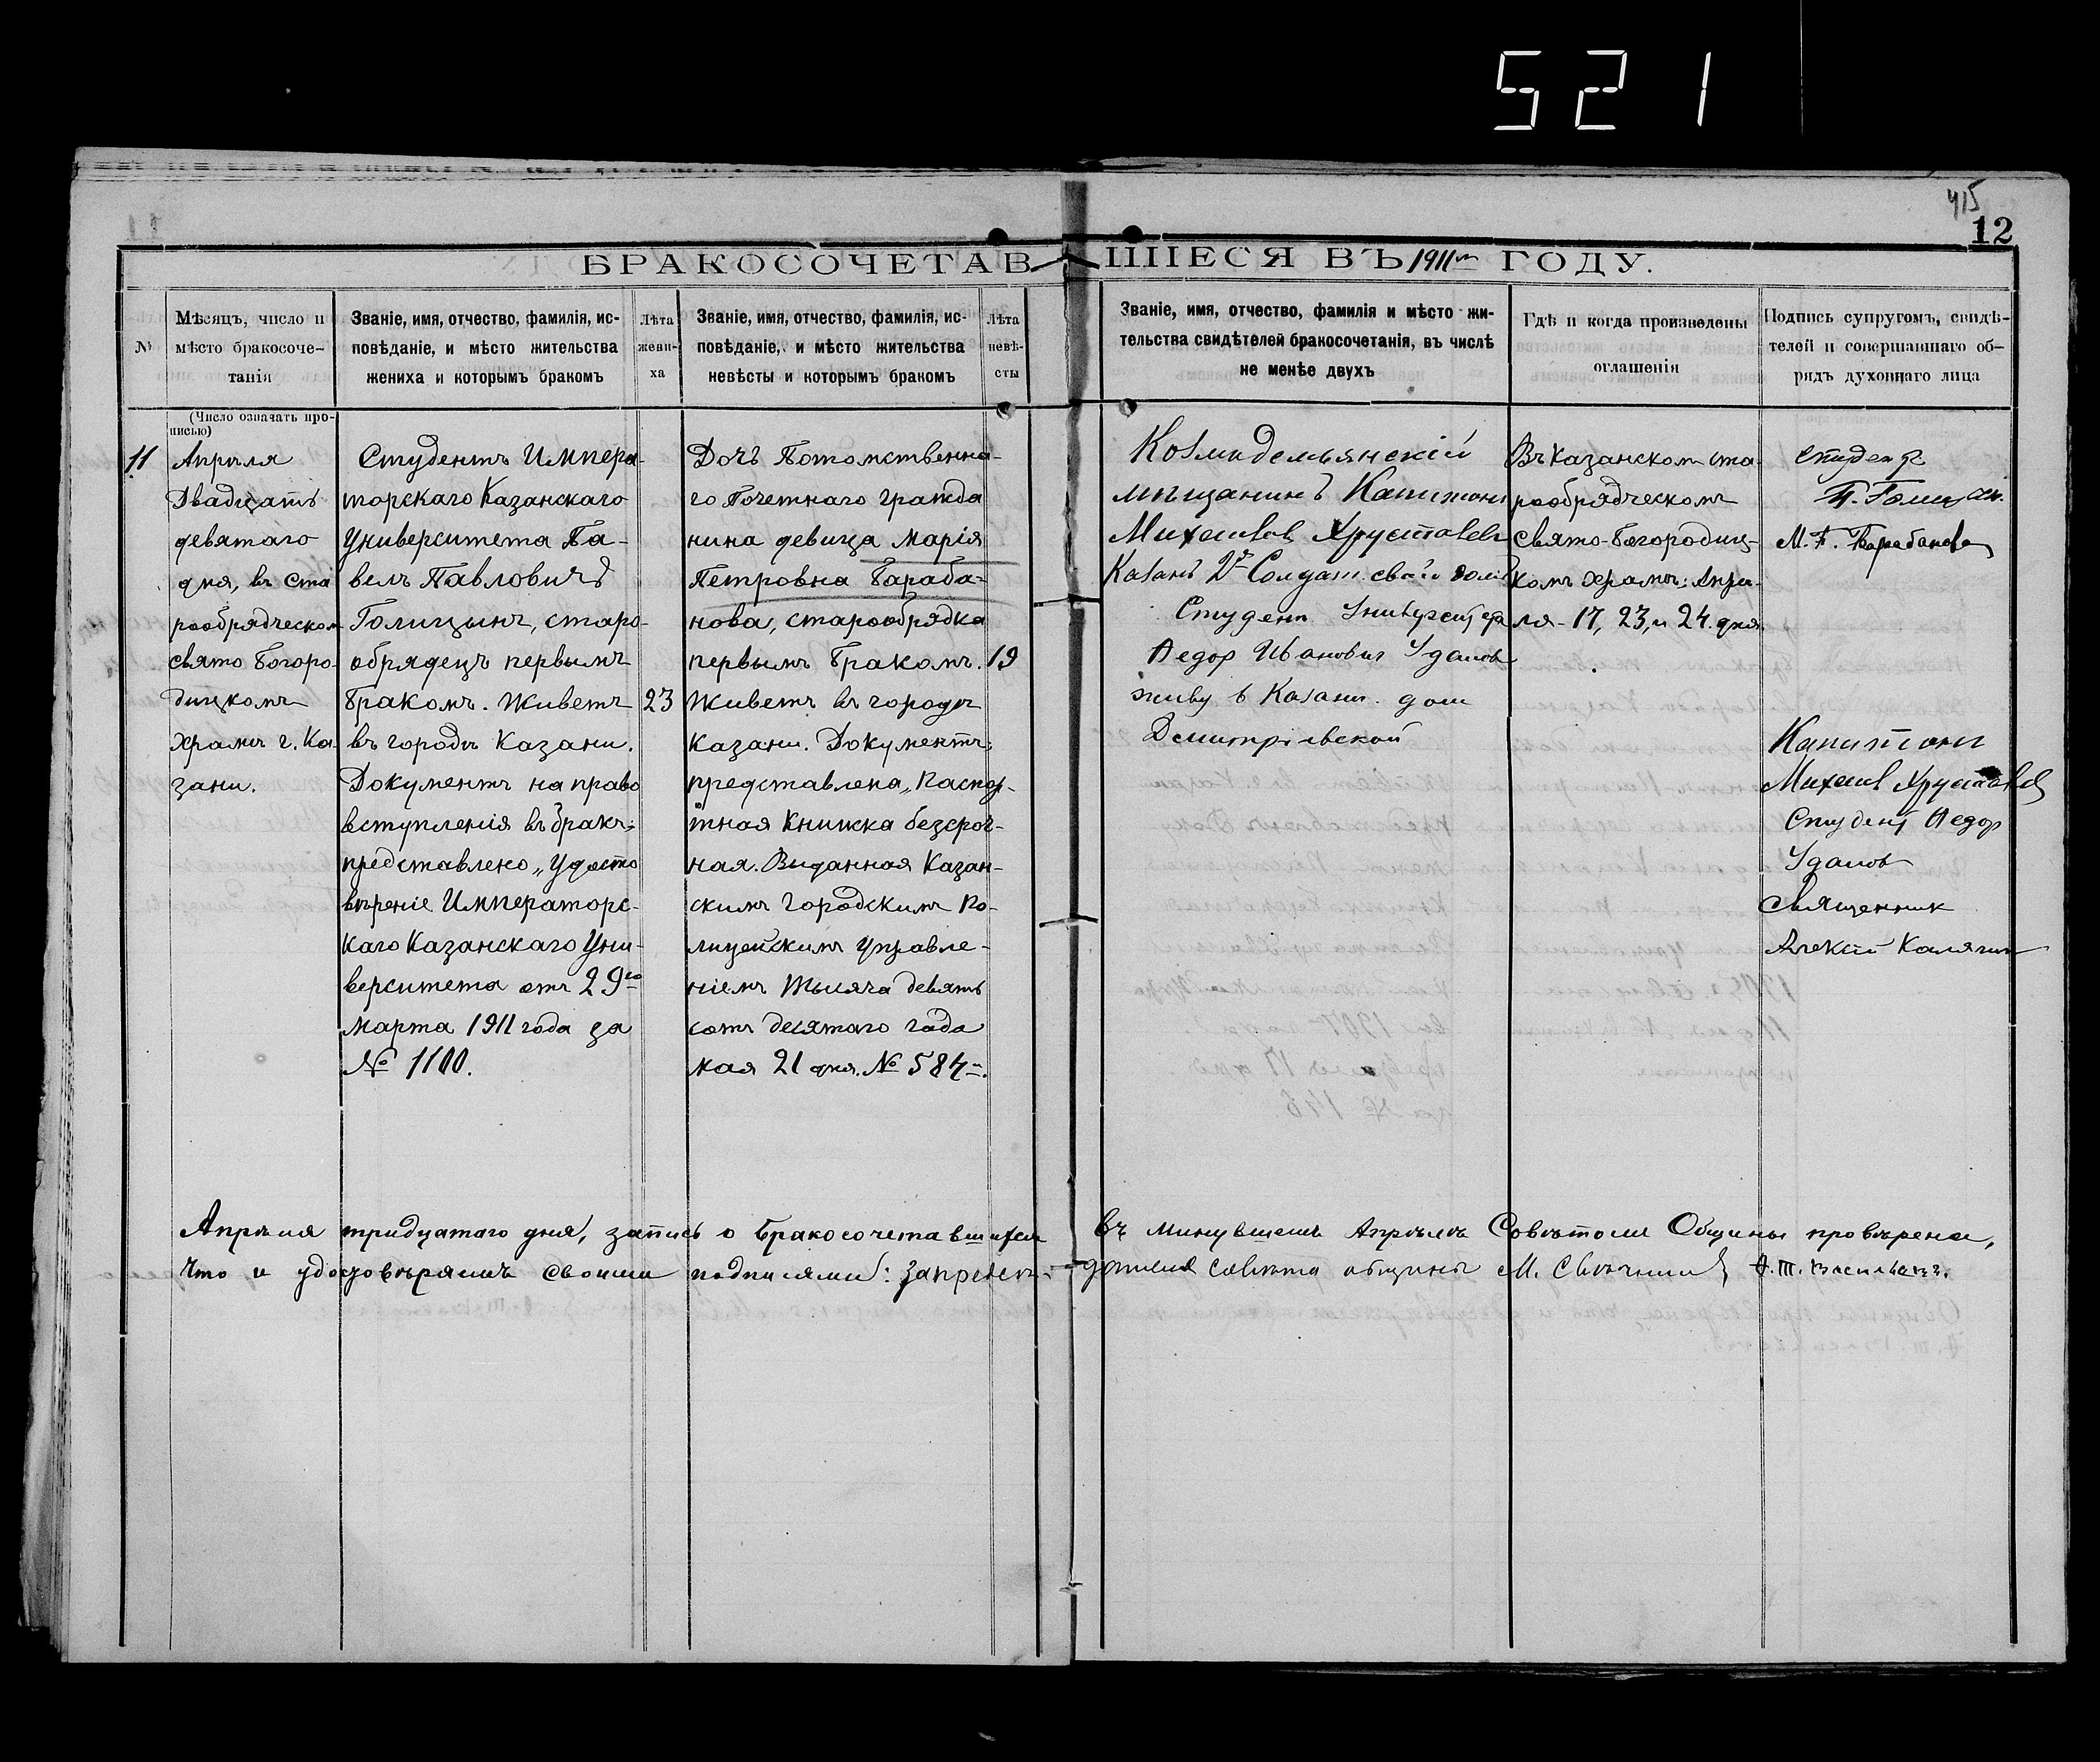 521
415
12
БРАКОСОЧЕТАВШІЕСЯ ВЪ 1911 ГОДУ.
№
Мѣсяцъ, число и
мѣсто бракосоче-
танія
Званіе, имя, отчество, фамилія, ис-
повѣданіе, и мѣсто жительства
жениха и которымъ бракомъ
Лѣта
жени-
ха
Званіе, имя, отчество, фамилія, ис-
повѣданіе, и мѣсто жительства
невѣсты и которымъ бракомъ
Лѣта
невѣ-
сты
Званіе, имя, отчество, фамилія и мѣсто жи-
тельства свидѣтелей бракосочетанія, въ числѣ
не менѣе двухъ
Гдѣ и когда произведены
оглашенія
Подпись супруговъ, свидѣ-
телей и совершавшаго об-
рядъ духовнаго лица
(Число означать про-
писью)
11
Апрѣля
Двадцать
девятаго
дня, въ Ста
рообрядческом
свято Богоро-
дицкомъ
храмѣ г. Ка
зани.
Студентъ Импера-
торскаго Казанскаго
Университета Па-
велъ Павловичъ
Голицынъ, старо-
обрядецъ первымъ
бракомъ. Живетъ
въ городѣ Казани.
Документъ на право
вступленія въ бракъ:
представлено „Удосто
вѣреніе Императорс-
каго Казанскаго Уни-
верситета отъ 29го
марта 1911 года за
№ 1100.
23
Дочь Потомственна-
го Почетнаго гражда
нина девица Марія
Петровна Бараба-
нова, старообрядка
первымъ бракомъ.
Живетъ въ городѣ
Казани. Документъ:
представлена „Паспор-
тная Книжка безсроч-
ная. Выданная Казан-
скимъ Городскимъ По-
лицейскимъ Управле-
ніемъ Тысяча девять
сотъ десятаго года
мая 21 дня. № 584
19
Козмодемьянскій
мѣщанинъ Капитонъ
Михеивъ Хрусталевъ
Казань 2я Солдат. свой домъ
Студент Университета
Федор Иванович Удалов
живу в Казани. дом
Димитріевской
Въ Казанском ста
рообрядческомъ
Свято-Богородиц-
комъ храмѣ: Апрѣ-
ля 17, 23, и 24. дня.
Студент
П. Голицын.
М. П. Барабанова
Капитонъ
Михеив Хрусталев
Студент Федор
Удалов
Священник
Алексій Калягин
Апрѣля тридцатаго дня, запись о бракосочетавшихся въ минувшемъ Апрѣлѣ Совѣтомъ Общины провѣрена,
Что и удостовѣряемъ своими подписями: За председателя совѣта общины М. Свѣчник Ф. Т. Васильевъ.